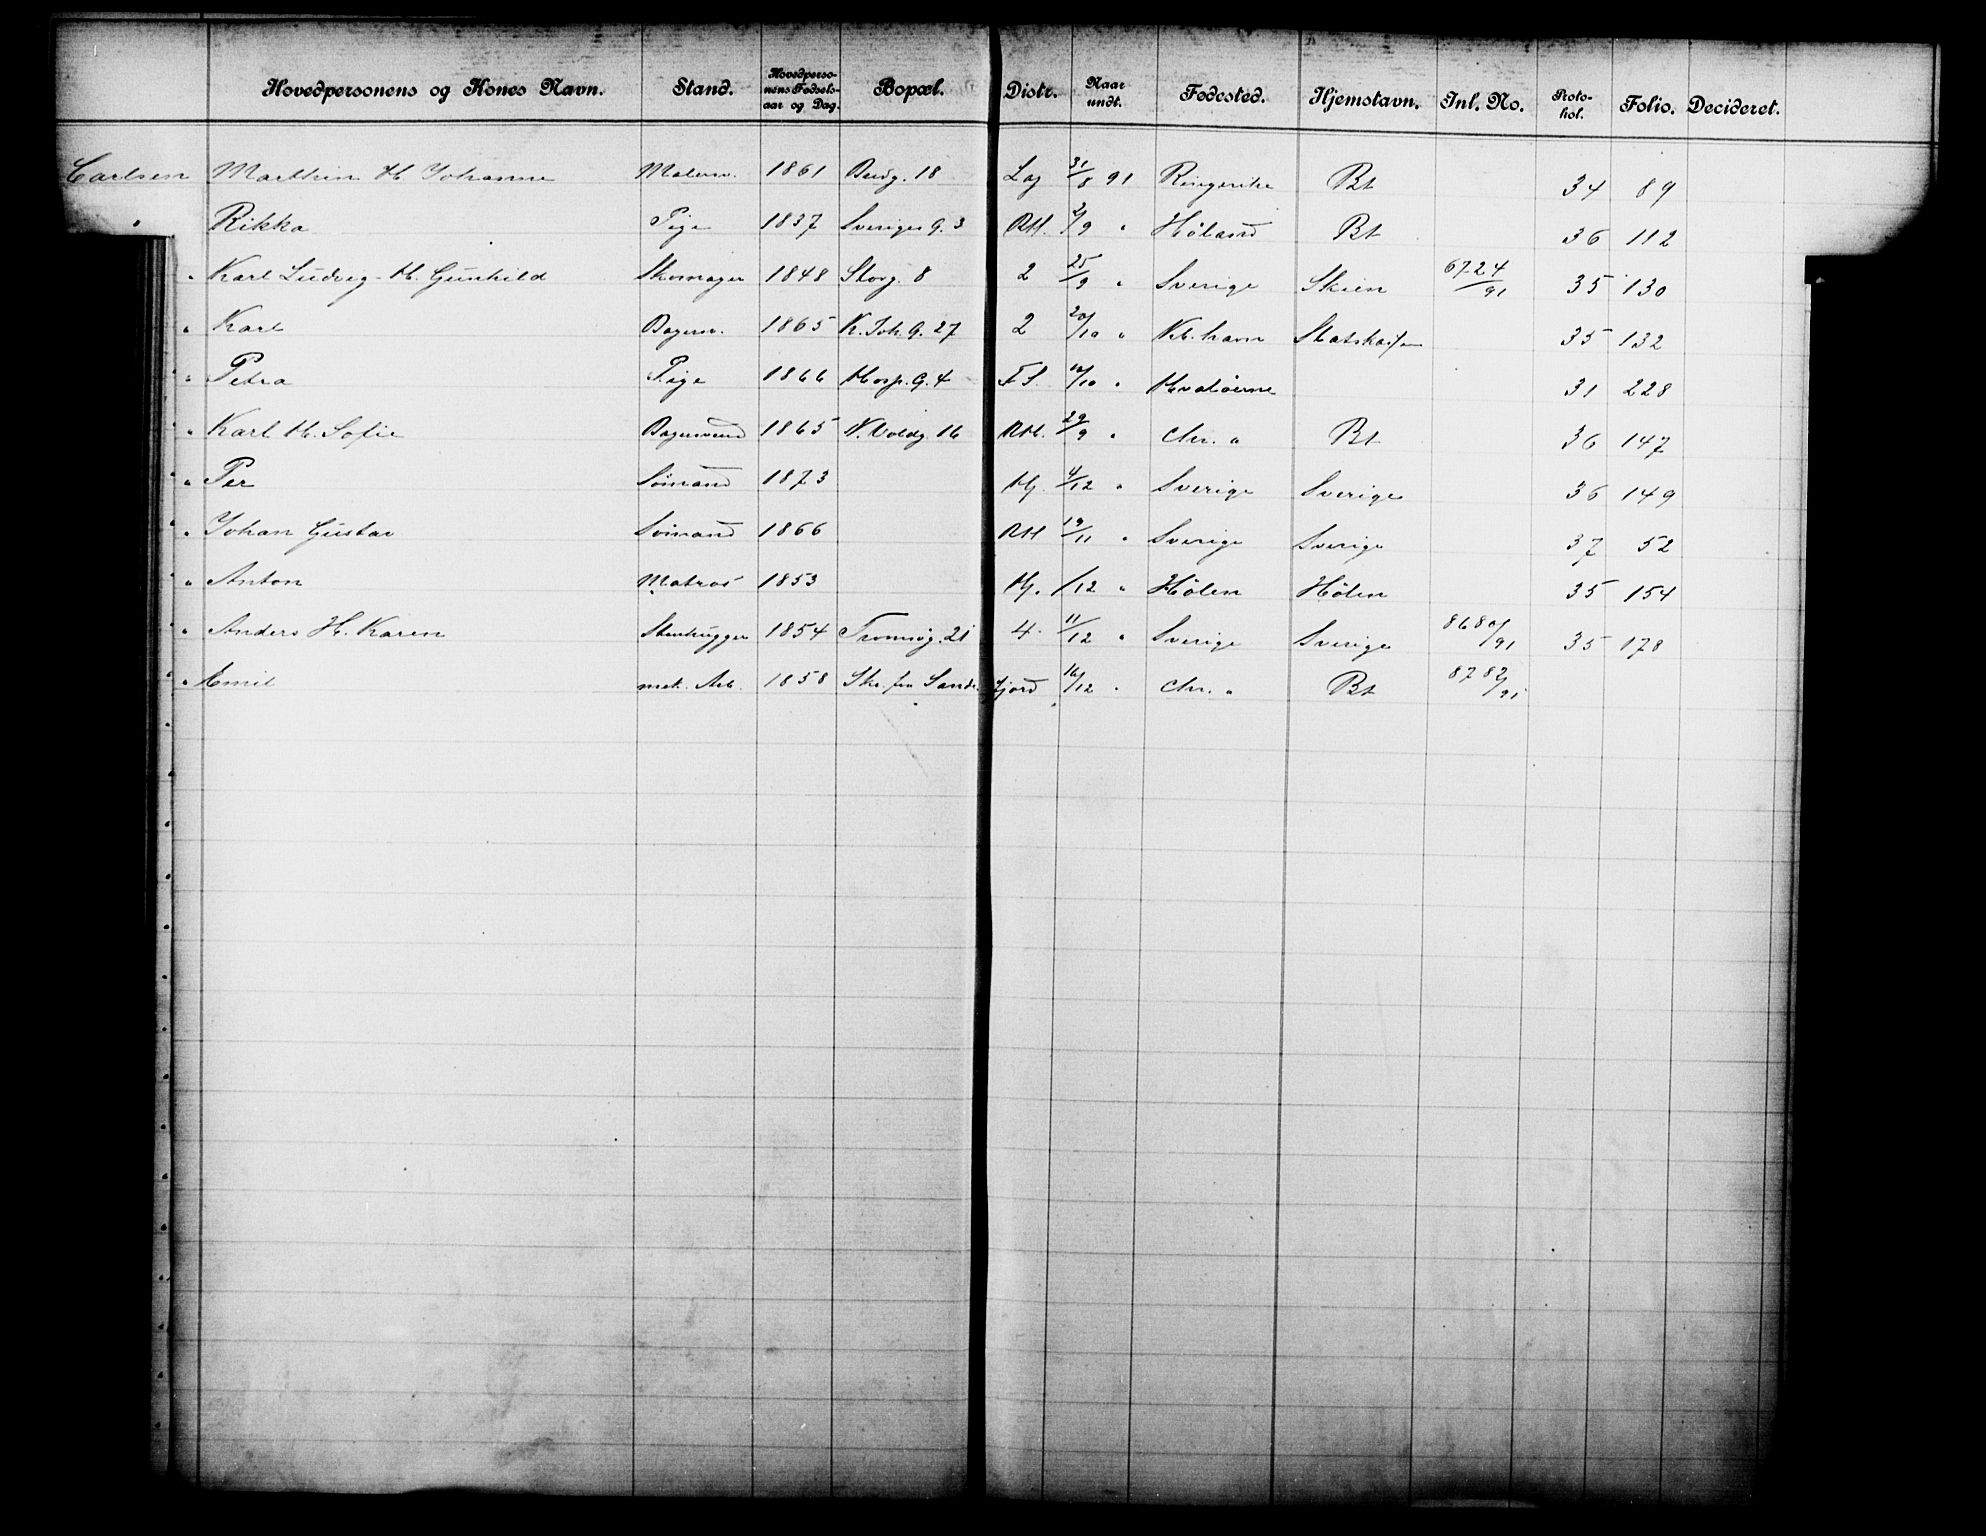 Hovedpersonens og Kones Navn. Stand. Hovedpersonens Fødselsaar og Dag. Bopæl. Distr. Naar undt. Fødested. Hjemstavn. Inl. No. Protokol. Folio. Decideret.
Carlsen Marthin H Johanne Malersv. 1861 Bredg. 18 Lag 31/8 91 Ringerike Bt 34 89
" Rikka Pige 1837 Sveriges G. 3 RH. 2/9 " Høland Bt 36 112
" Karl Ludvig H. Gunhild Skomager 1848 Storg. 8 2 25/9 " Sverige Skien 6724/91 35 130
" Karl Bagersv. 1865 K. Joh. G. 27 2 20/10 " Kb.havn Statskassen 35 132
" Petra Pige 1866 Hosp. G. 4 FS. 10/10 " Hvaløerne 31 228
" Karl H. Sofie Bagersvend 1865 N. Voldg. 16 RH. 29/9 " Chr. a Bt 36 147
" Per Sømand 1873 Hj. 4/12 " Sverige Sverige 36 149
" Johan Gustav Sømand 1866 RH 19/11 " Sverige Sverige 37 52
" Anton Matros 1853 Hj. 1/12 " Hølen Hølen 35 154
" Anders H. Karen Stenhugger 1854 Tromsøg. 21 4. 11/12 " Sverige Sverige 8680/91 35 178
" Emil mek. Arb. 1858 Skr. fra Sandefjord 16/12 " Chr. a Bt 8782/91